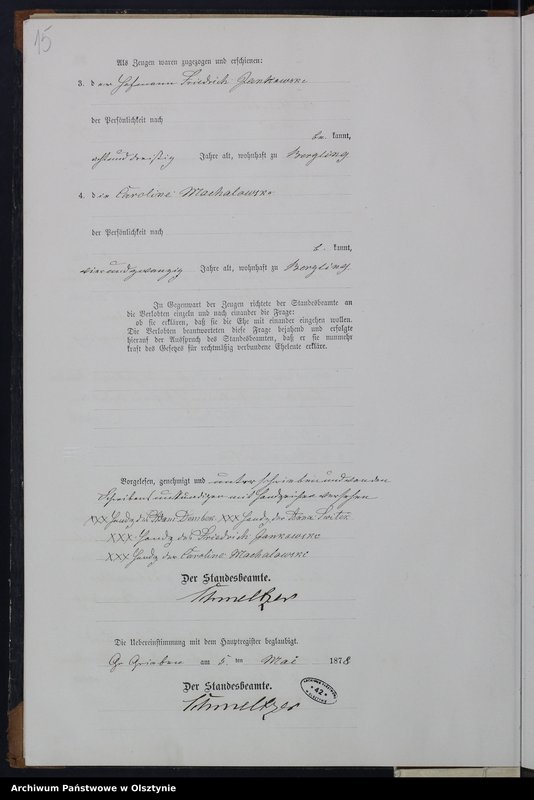 15
Als Zeugen waren zugezogen und erschienen:
3. der Hofmann Friedrich Jankowski
der Persönlichkeit nach
be kannt,
achtunddreißig Jahre alt, wohnhaft zu Bergling
4. die Caroline Machalowski
der Persönlichkeit nach
b. kannt,
vierundzwanzig Jahre alt, wohnhaft zu Bergling
In Gegenwart der Zeugen richtete der Standesbeamte an
die Verlobten einzeln und nach einander die Frage:
ob sie erklären, daß sie die Ehe mit einander eingehen wollen.
Die Verlobten beantworteten diese Frage bejahend und erfolgte
hierauf der Ausspruch des Standesbeamten, daß er sie nunmehr
kraft des Gesetzes für rechtmäßig verbundene Eheleute erkläre.
Vorgelesen, genehmigt und unterschrieben und von den
Schreibens unkundigen mit Handzeichen versehen
XXX Handz. des Dombek XXX Handz. der Anna
XXX Handz des Friedrich Jankowski
XXX Handz der Caroline Machalowski
Der Standesbeamte.
Schmeltzer
Die Uebereinstimmung mit dem Hauptregister beglaubigt.
Gr Grieben am 5 ten Mai 1878
Der Standesbeamte.
Schmeltzer
42
Archiwum Państwowe w Olsztynie